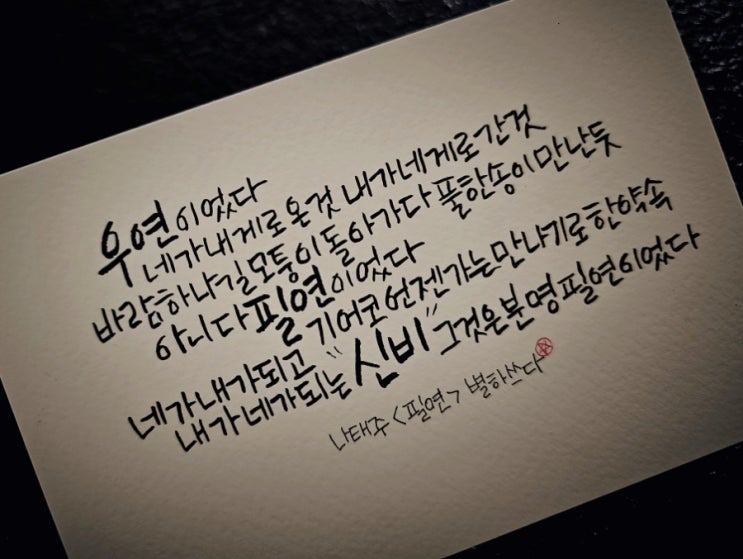 우연이었다
네가 내게로 온 것 내가 네게로 간 것
바람 하나 길모퉁이 돌아가다 풀 한 송이 만난 듯
아니다 필연이었다
기어코 언젠가는 만나기로 한 약속
네가 내가 되고
내가 네가 되는 "신비" 그것은 분명 필연이었다
나태주 <필연> 별하쓰다